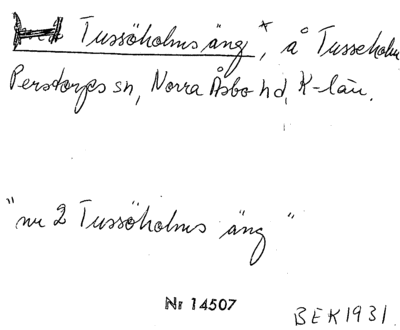 Tussöholms äng*, å Tusseholm
Perstorps sn, Norra Åsbo hd, K-län.
"nr 2 Tussöholms äng"
Nr 14507
BEK 1931.